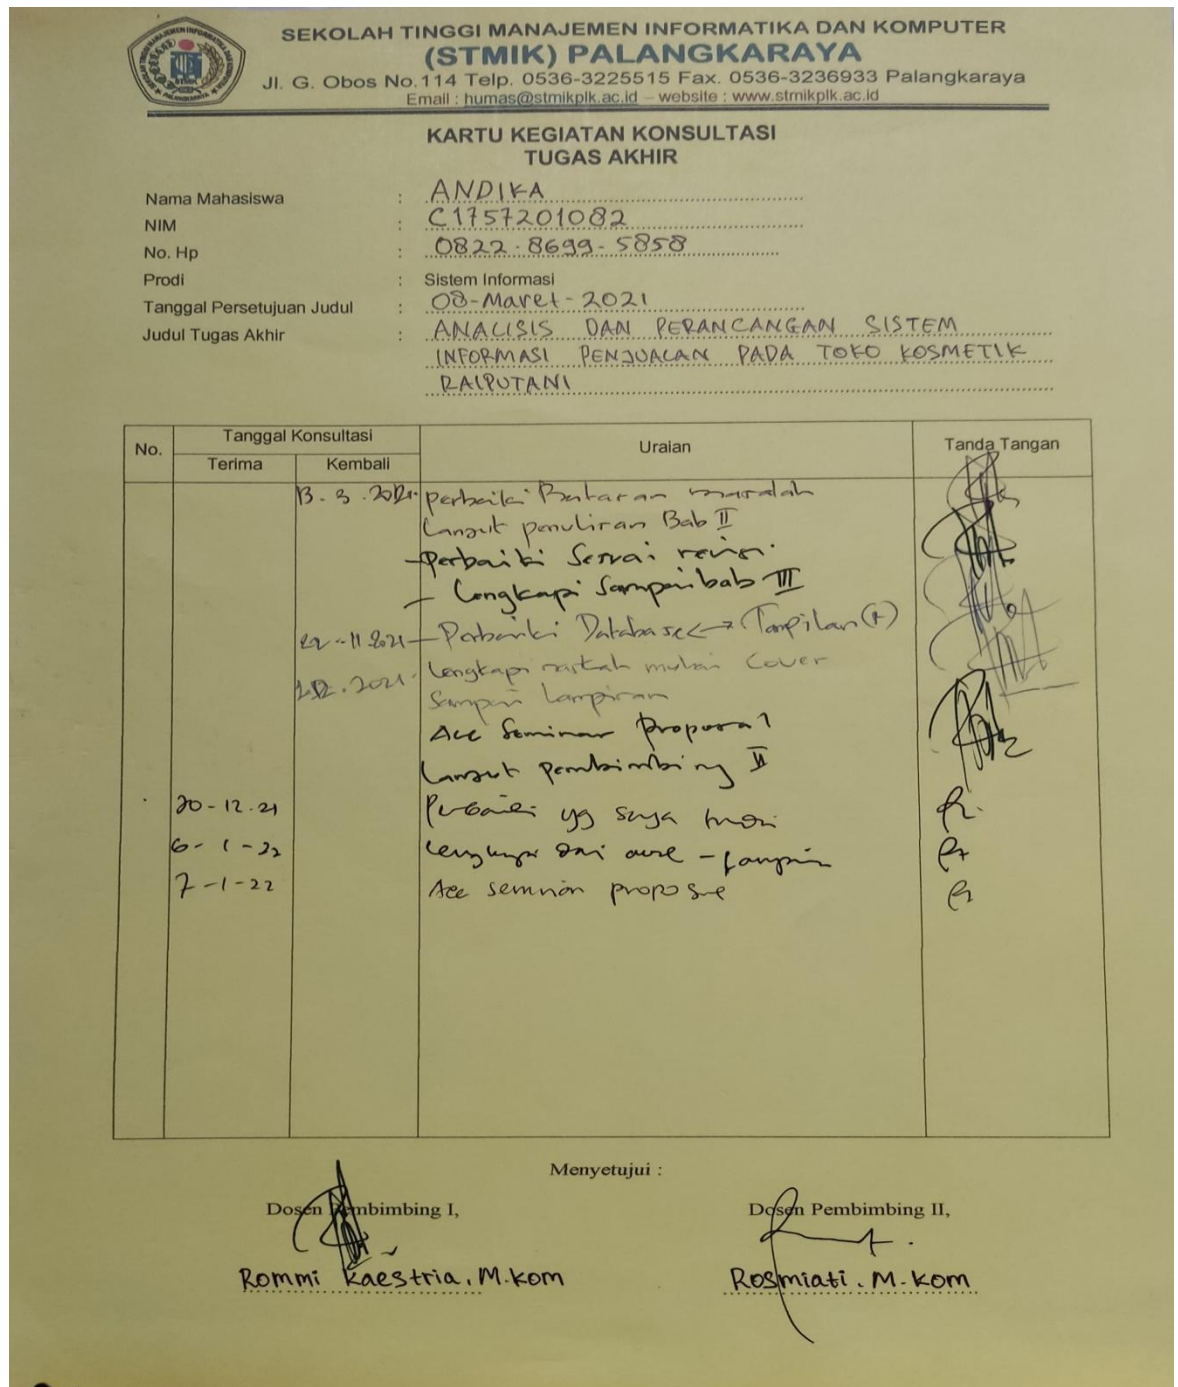 SEKOLAH TINGGI MANAJEMEN INFORMATIKA DAN KOMPUTER
(STMIK) PALANGKARAYA
Jl. G. Obos No.114 Telp. 0536-3225515 Fax. 0536-3236933 Palangkaraya
Email : humas@stmikplk.ac.id – website : www.stmikplk.ac.id
KARTU KEGIATAN KONSULTASI
TUGAS AKHIR
Nama Mahasiswa : ANDIKA
NIM : C1757201082
No. Hp : 0822-8699-5858
Prodi : Sistem Informasi
Tanggal Persetujuan Judul : 08-Maret-2021
Judul Tugas Akhir : ANALISIS DAN PERANCANGAN SISTEM
INFORMASI PENJUALAN PADA TOKO KOSMETIK
RAIPUTANI
No. Tanggal Konsultasi Uraian Tanda Tangan
Terima Kembali
13-3-2021 perbaiki Batasan masalah
Lanjut penulisan Bab II
- Perbaiki Sesuai revisi.
- Lengkapi Sampai bab III
22-11-2021 - Perbaiki Database <-> Tampilan (+)
2021 Lengkapi naskah mulai Cover
Sampai Lampiran
Acc Seminar Proposal
Lanjut pembimbing II
20-12-21 Perbaiki yg saya
6-1-22 Lengkapi dari
7-1-22 Acc seminar
Menyetujui :
Dosen Pembimbing I, Dosen Pembimbing II,
Rommi Kaestria, M.Kom Rosmiati. M.Kom